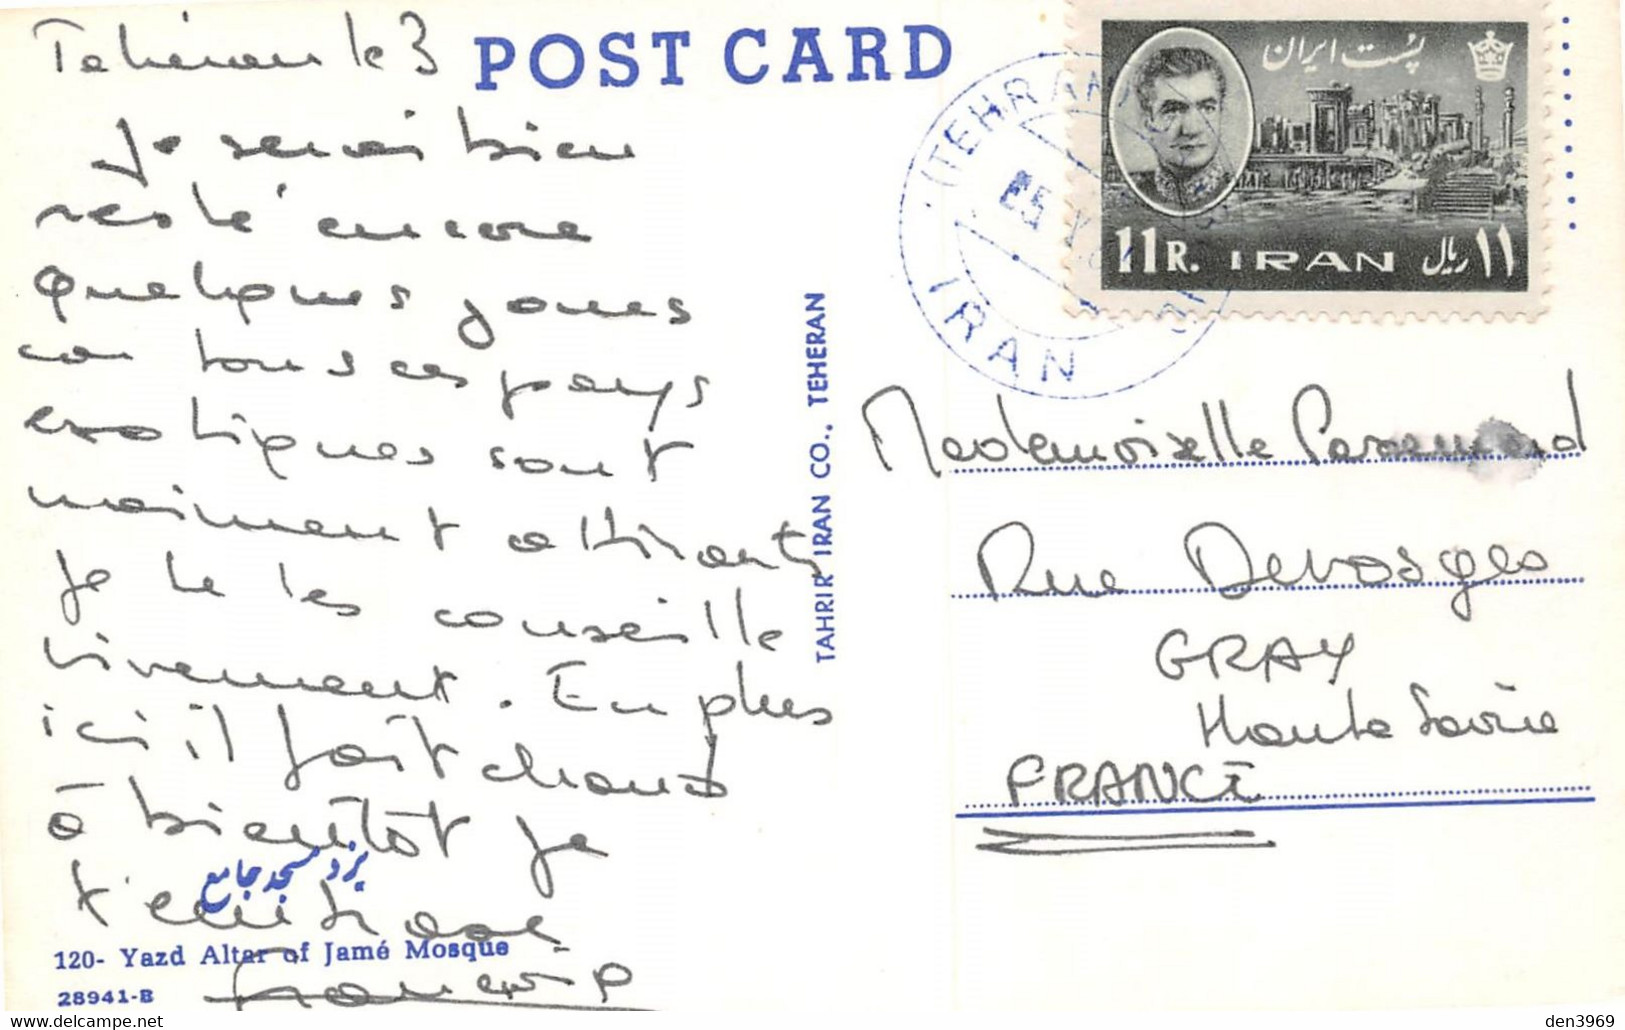 Tehéran le 3
POST CARD
Je serais bien
resté encore
quelques jours
car tous ces pays
exotiques sont
vraiment attirants
Je te les conseille
vivement. En plus
ici il fait chaud
à bientôt je
t'embrasse
یزد مسجد جامع
120- Yazd Altar of Jamé Mosque
28941-B
TAHRIR IRAN CO., TEHERAN
TEHRAN
IRAN
پست ایران
11R. IRAN ۱۱ ریال
Mademoiselle
Rue Devosges
GRAY
Haute Saône
FRANCE
den3969